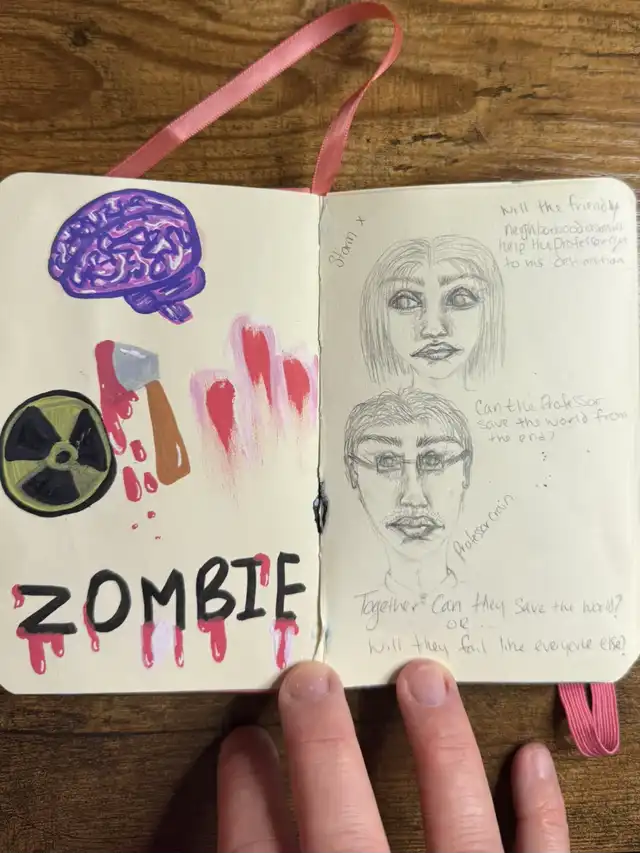 ZOMBIE
Storm x
Will the friendly
help the Professor get
to his destination
Can the Professor
save the world from
the end?
Professor
Together Can they save the world?
OR ...
Will they fail like everyone else?